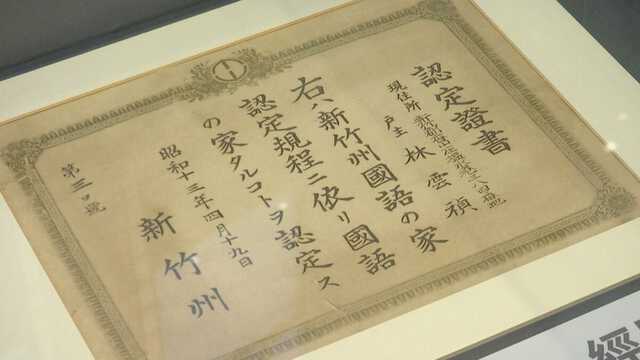 認定證書
現住所
戶主 林雲禎
右ハ新竹州國語の家
認定規程ニ依リ國語
の家タルコトヲ認定ス
昭和十三年四月十九日
新竹州
第三口號
經